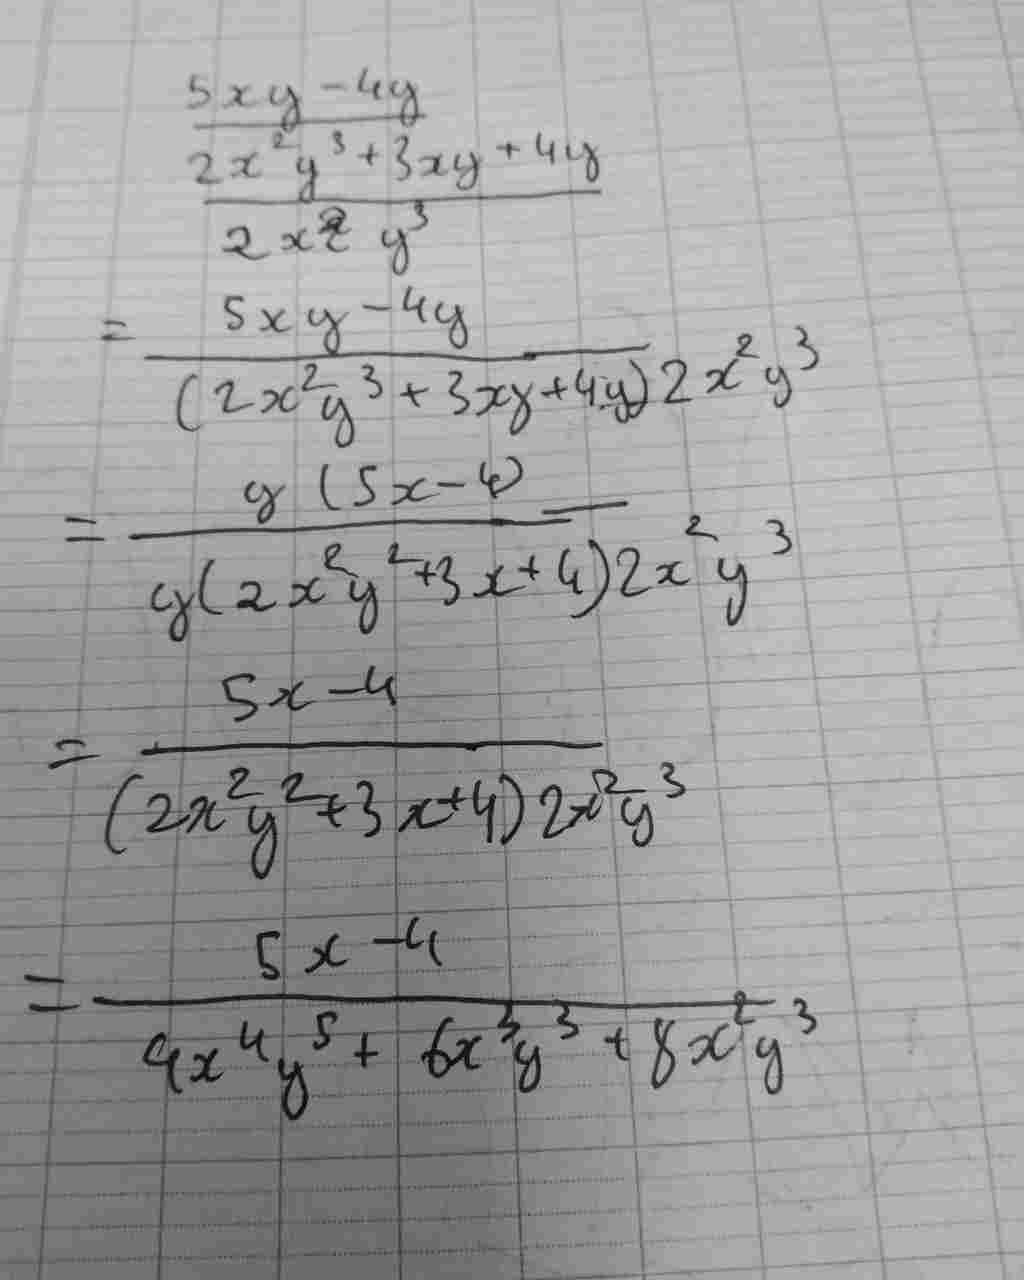 5xy - 4y
2x²y³ + 3xy + 4y
2x² y³
= 5xy - 4y
(2x²y³ + 3xy + 4y) 2x²y³
= y (5x - 4)
y(2x²y² + 3x + 4) 2x²y³
= 5x - 4
(2x²y² + 3x + 4) 2x²y³
= 5x - 4
4x⁴y⁵ + 6x³y³ + 8x²y³